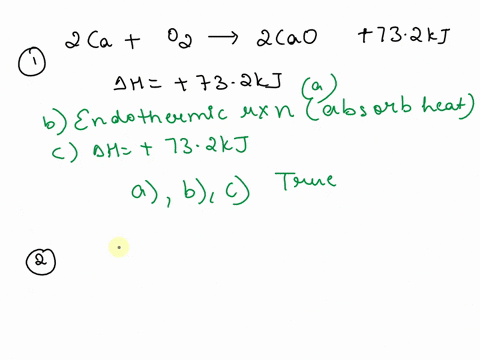 2Ca + O2 → 2CaO + 73.2kJ
①
ΔH = + 73.2kJ (a)
b) Endothermic rxn (absorb heat)
c) ΔH = + 73.2kJ
a), b), c) True
②